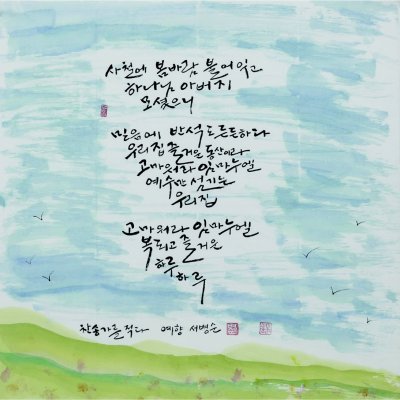 사철에 봄바람 불어 잇고
하나님 아버지
모셨으니
믿음에 반석도 든든하다
우리집 즐거운 동산이라
고마워라 임마누엘
예수만 섬기는
우리집
고마워라 임마누엘
복되고 즐거운
하루
하루
찬송가를 적다 예향 서병순